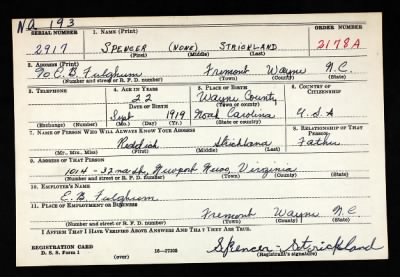 Na 193
SERIAL NUMBER 1. NAME (Print) ORDER NUMBER
2917 SPENCER (NONE) STRICKLAND 2178A
(First) (Middle) (Last)
2. ADDRESS (Print)
% C. B. Fulghum Fremont Wayne N.C.
(Number and street or R. F. D. number) (Town) (County) (State)
3. TELEPHONE 4. AGE IN YEARS 5. PLACE OF BIRTH 6. COUNTRY OF CITIZENSHIP
22 Wayne County
DATE OF BIRTH (Town or county)
Sept 1919 North Carolina U.S.A
(Exchange) (Number) (Mo.) (Day) (Yr.) (State or country)
7. NAME OF PERSON WHO WILL ALWAYS KNOW YOUR ADDRESS 8. RELATIONSHIP OF THAT PERSON
Reddick Strickland Father
(Mr., Mrs., Miss) (First) (Middle) (Last)
9. ADDRESS OF THAT PERSON
1014 - 32nd St., Newport News, Virginia
(Number and street or R. F. D. number) (Town) (County) (State)
10. EMPLOYER'S NAME
C. B. Fulghum
11. PLACE OF EMPLOYMENT OR BUSINESS
Fremont Wayne N.C.
(Number and street or R. F. D. number) (Town) (County) (State)
I AFFIRM THAT I HAVE VERIFIED ABOVE ANSWERS AND THAT THEY ARE TRUE.
REGISTRATION CARD
D. S. S. Form 1 (over) 16—17105 Spencer - Strickland
(Registrant's signature)